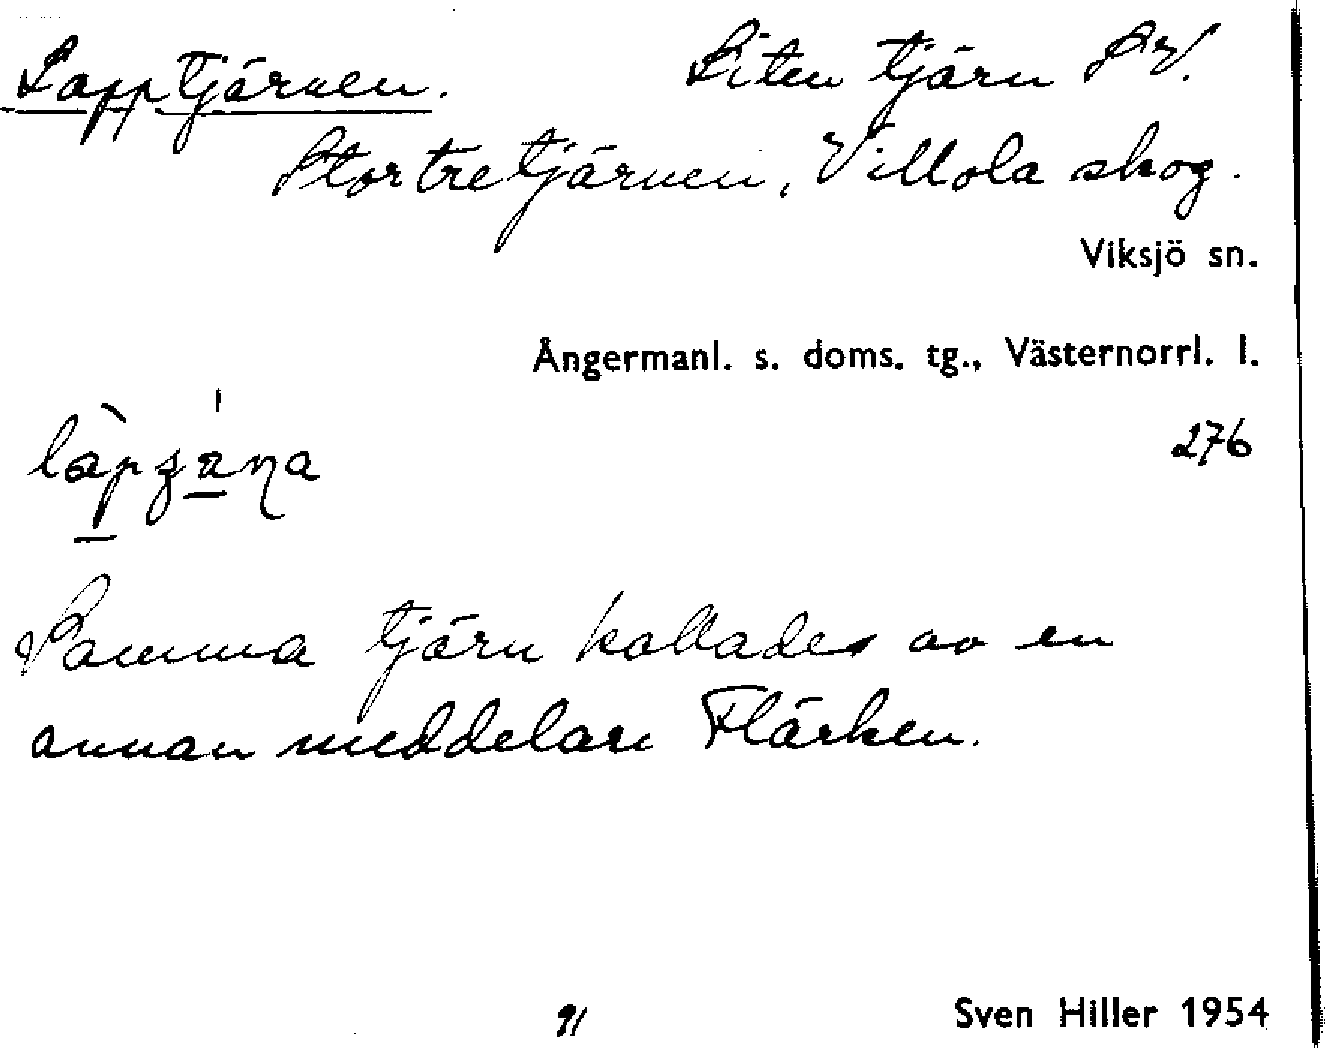 Lapptjärnen. Liten tjärn SV.
Stortretjärnen, Villola skog.
Viksjö sn.
Ångermanl. s. doms. tg., Västernorrl. l.
276
Samma tjärn kallades av en
annan meddelare Flärken.
91 Sven Hiller 1954